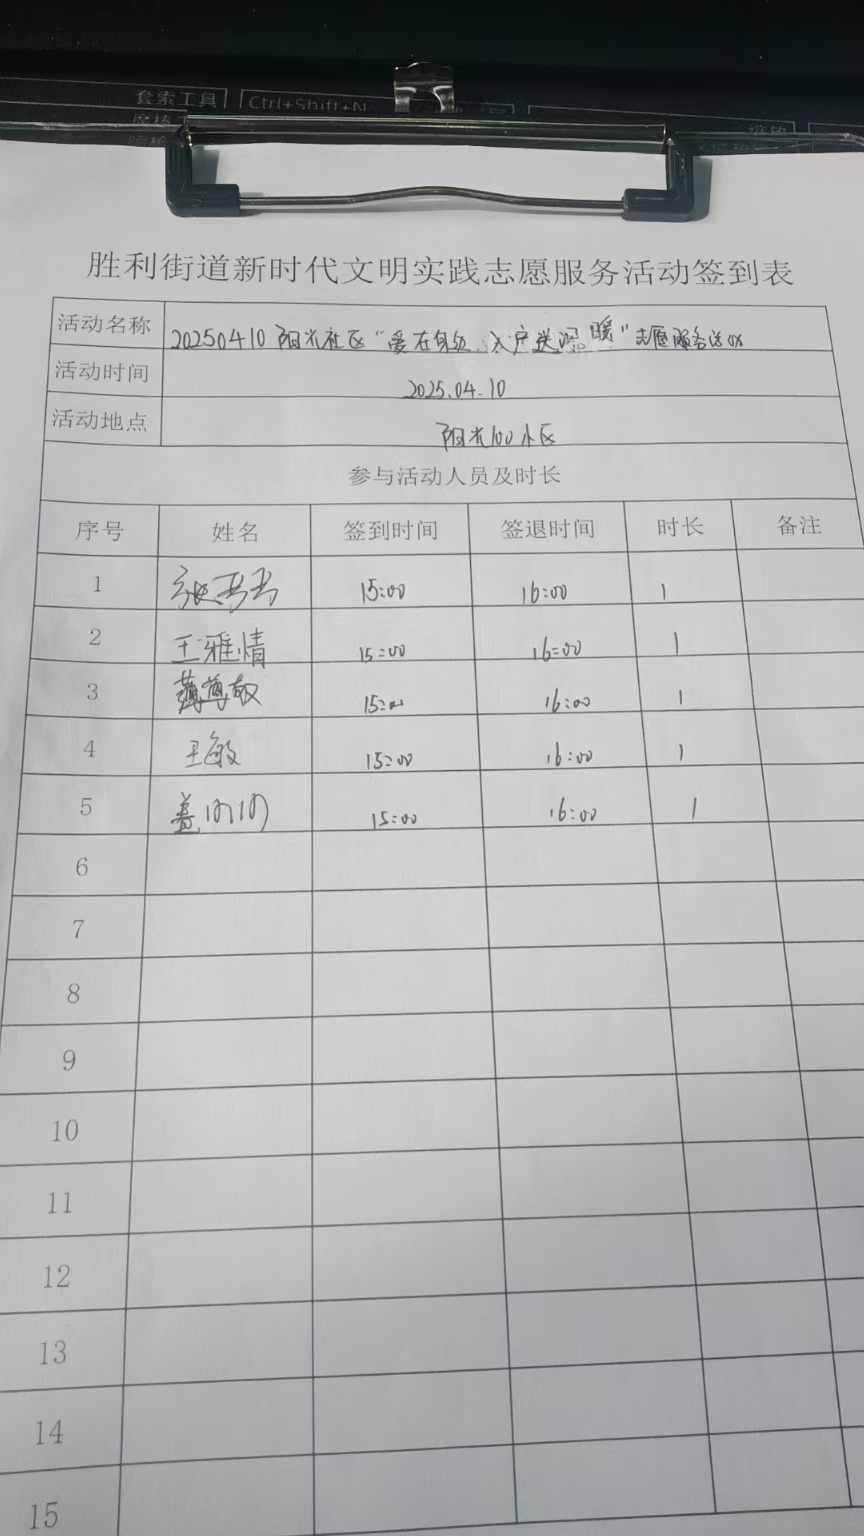 套索工具 Ctrl+Shift+N
胜利街道新时代文明实践志愿服务活动签到表
活动名称 20250410 阳光社区“爱在身边,入户送温暖”志愿服务活动
活动时间 2025.04.10
活动地点 阳光100小区
参与活动人员及时长
序号 姓名 签到时间 签退时间 时长 备注
1 15:00 16:00 1
2 王雅倩 15:00 16:00 1
3 薄尊敬 15:00 16:00 1
4 王敏 15:00 16:00 1
5 盖 15:00 16:00 1
6
7
8
9
10
11
12
13
14
15